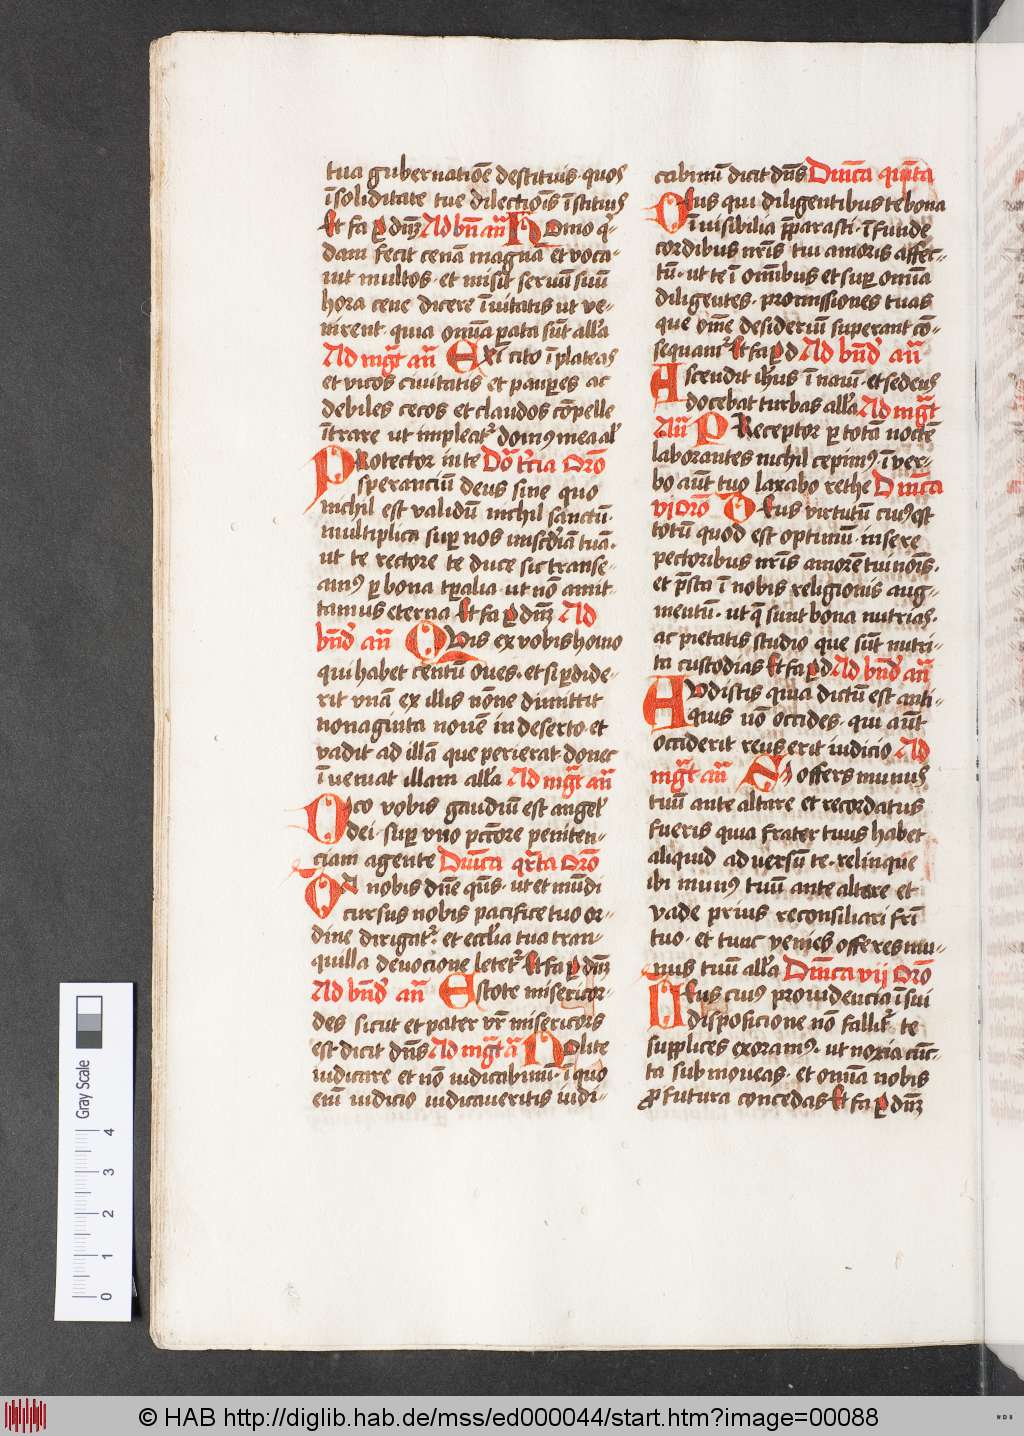 tua gubernatiōe destituis · quos
ī soliditate tue dilectiōis īstituis
Et fa ꝑ dn̄m Ad bn̄ an̄ Homo qͥ-
dam fecit cenam magnā et voca-
uit multos · et misit seruū suū
hora cene dicere īuitatis ut ve-
nirent · quia om̄ia ꝑata sūt all'a
Ad mḡt an̄ Exi cito ī plateas
et vicos ciuitatis et pauꝑes ac
debiles cecos et claudos cōpelle
ītrare ut impleatͬ domꝰ mea al'
PRotector in te Do t'cia Oro
speranciū deus sine quo
nichil est validū nichil sanctū ·
multiplica suꝑ nos mis'cdiā tuā ·
ut te rectore te duce sic transe-
amꝰ ꝑ bona tꝑalia ut nō amit-
tamus eterna Et fa ꝑ dn̄m Ad
bn̄d' an̄ QVis ex vobis homo
qui habet centū oues · et si ꝑdide-
rit vnā ex illis nōne dimittit
nonaginta nouē in deserto · et
vadit ad illā que perierat donec
īueniat illam all'a Ad mḡt an̄
Dico vobis gaudiū est angel'
dei · suꝑ vno pctōre peniten-
ciam agente Dm̄ca qrta Oro
DA nobis dn̄e qs̄ · ut et mūdi
cursus nobis pacifice tuo or-
dine dirigatͬ · et eccl'ia tua tran-
quilla deuocione letetͬ Et fa ꝑ dn̄m
Ad bn̄d' an̄ Estote misericor-
des sicut et pater vr̄ misericors
est dicit dn̄s Ad mḡt a Nolite
iudicare et nō iudicabimī · ī quo
enī iudicio iudicaueritis iudi-
cabimī dicit dn̄s Dm̄ca quīta
DEus qui diligentibus te bona
īuisibilia p̄parasti · īfunde
cordibus nr̄is tui amoris affec-
tū · ut te ī om̄ibus et suꝑ om̄ia
diligentes · promissiones tuas
que om̄e desideriū superant cō-
sequamͬ Et fa ꝑ d Ad bn̄d' an̄
Ascendit ih̄us ī nauī · et sedens
docebat turbas all'a Ad mḡt
an̄ PReceptor ꝑ totā noctē
laborantes nichil cepimꝰ · ī ver-
bo aūt tuo laxabo rethe Dm̄ca
vj Oro DEus virtutū cuiꝰ est
totū quod est optimū · insere
pectoribus nr̄is amorē tui nōis ·
et p̄sta ī nobis religionis aug-
mentū · ut q̄ sunt bona nutrias ·
ac pietatis studio que sūt nutri-
ta custodias Et fa ꝑ d Ad bn̄d' an̄
AVdistis quia dictū est anti-
quis nō occides · qui aūt
occiderit reus erit iudicio Ad
mḡt an̄ Si offers munus
tuū ante altare et recordatus
fueris quia frater tuus habet
aliquid aduersū te · relinque
ibi munꝰ tuū ante altare et
vade prius reconsiliari frī
tuo · et tunc veniēs offeres mu-
nus tuū all'a Dm̄ca vij Oro
DEus cuiꝰ prouidencia ī sui
disposicione nō fallitͬ · te
supplices exoramꝰ · ut noxia cūc-
ta submoueas · et om̄ia nobis
ꝓfutura concedas Et fa ꝑ dn̄m
Gray Scale
0 1 2 3 4
© HAB http://diglib.hab.de/mss/ed000044/start.htm?image=00088